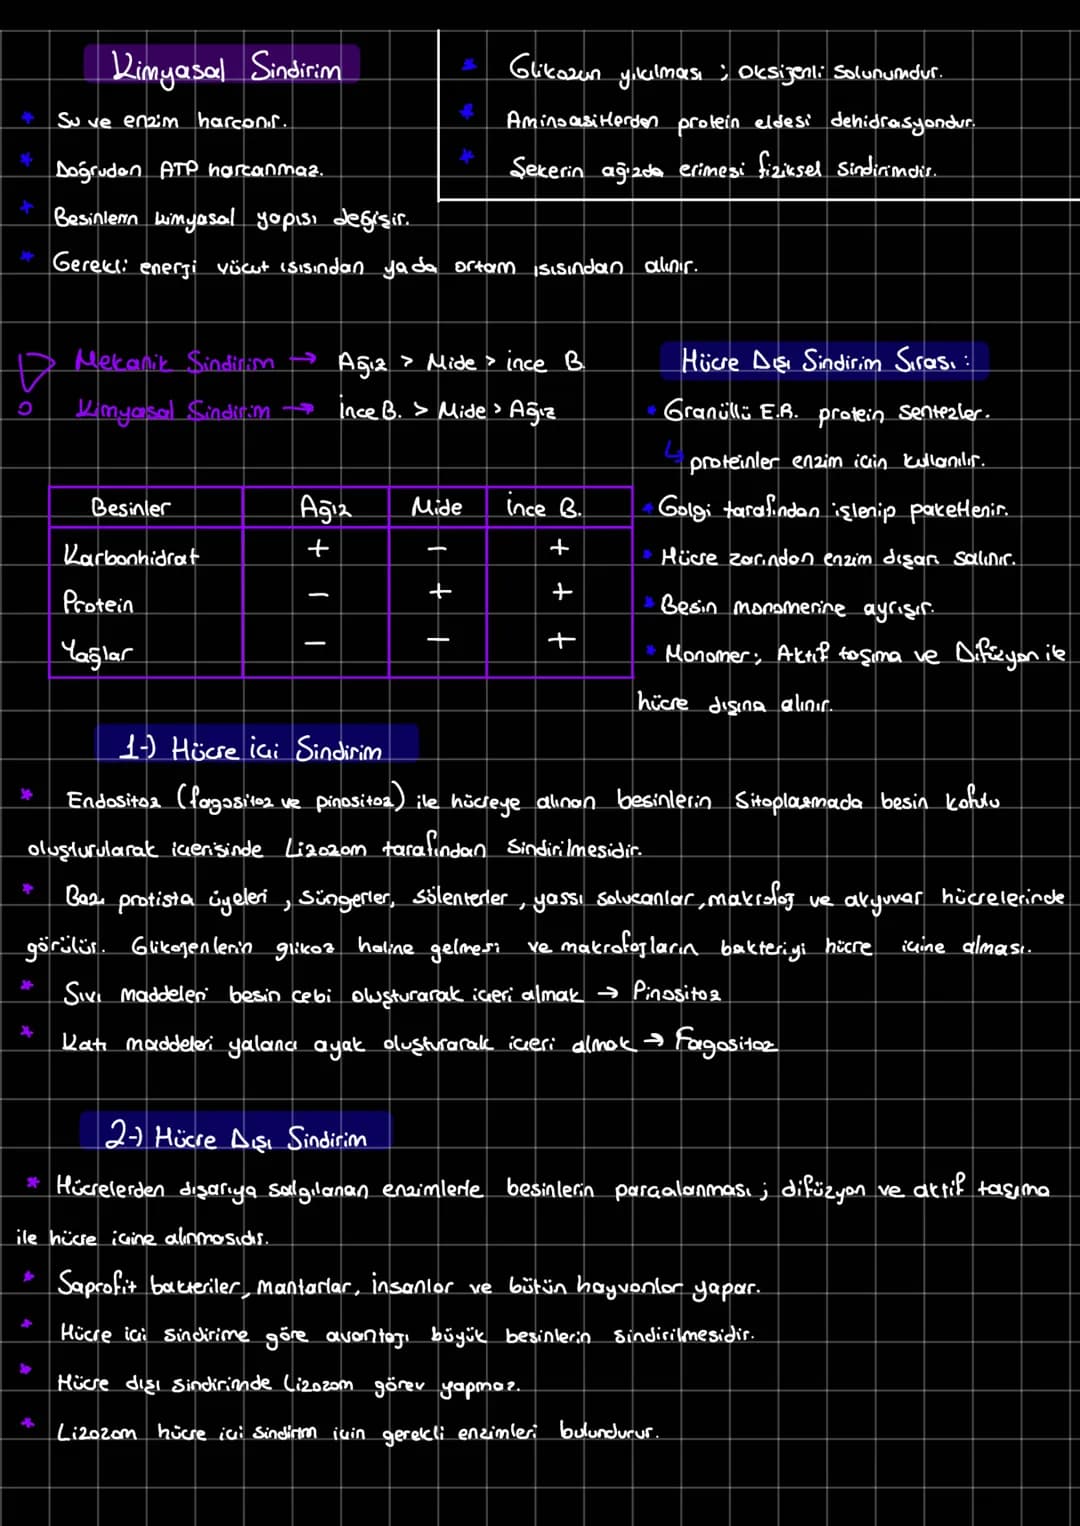 Kimyasal Sindirim
* Su ve enzim harcanır.
* Doğrudan ATP harcanmaz.
* Besinlerin kimyasal yapısı değişir.
* Gerekli enerji vücut ısısından yada ortam ısısından alınır.
* Glikozun yıkılması ; Oksijenli Solunumdur.
* Aminoasitlerden protein eldesi dehidrasyondur.
* Şekerin ağızda erimesi fiziksel Sindirimdir.
Mekanik Sindirim → Ağız > Mide > ince B
Kimyasal Sindirim → İnce B. > Mide > Ağız
Besinler Ağız Mide İnce B.
Karbonhidrat + - +
Protein - + +
Yağlar - - +
Hücre Dışı Sindirim Sırası :
* Granüllü E.R. protein sentezler.
↳ proteinler enzim için kullanılır.
* Golgi tarafından işlenip paketlenir.
* Hücre zarından enzim dışarı salınır.
* Besin monomerine ayrışır.
* Monomer; Aktif taşıma ve Difüzyon ile
hücre dışına alınır.
1-) Hücre içi Sindirim
* Endositoz (fagositoz ve pinositoz) ile hücreye alınan besinlerin Sitoplazmada besin kofulu
oluşturularak içerisinde Lizozom tarafından Sindirilmesidir.
* Bazı protista üyeleri , Süngerler, Sölenterler , yassı solucanlar, makrofoj ve akyuvar hücrelerinde
görülür. Glikojenlerin glikoz haline gelmesi ve makrofajların bakteriyi hücre içine alması.
* Sıvı maddeleri besin cebi oluşturarak içeri almak → Pinositoz
* Katı maddeleri yalancı ayak oluşturarak içeri almak → Fagositoz
2-) Hücre Dışı Sindirim
* Hücrelerden dışarıya salgılanan enzimlerle besinlerin parçalanması ; difüzyon ve aktif taşıma
ile hücre içine alınmasıdır.
* Saprofit bakteriler, mantarlar, insanlar ve bütün hayvanlar yapar.
* Hücre içi sindirime göre avantajı büyük besinlerin sindirilmesidir.
* Hücre dışı sindirimde Lizozom görev yapmaz.
* Lizozom hücre içi sindirim için gerekli enzimleri bulundurur.